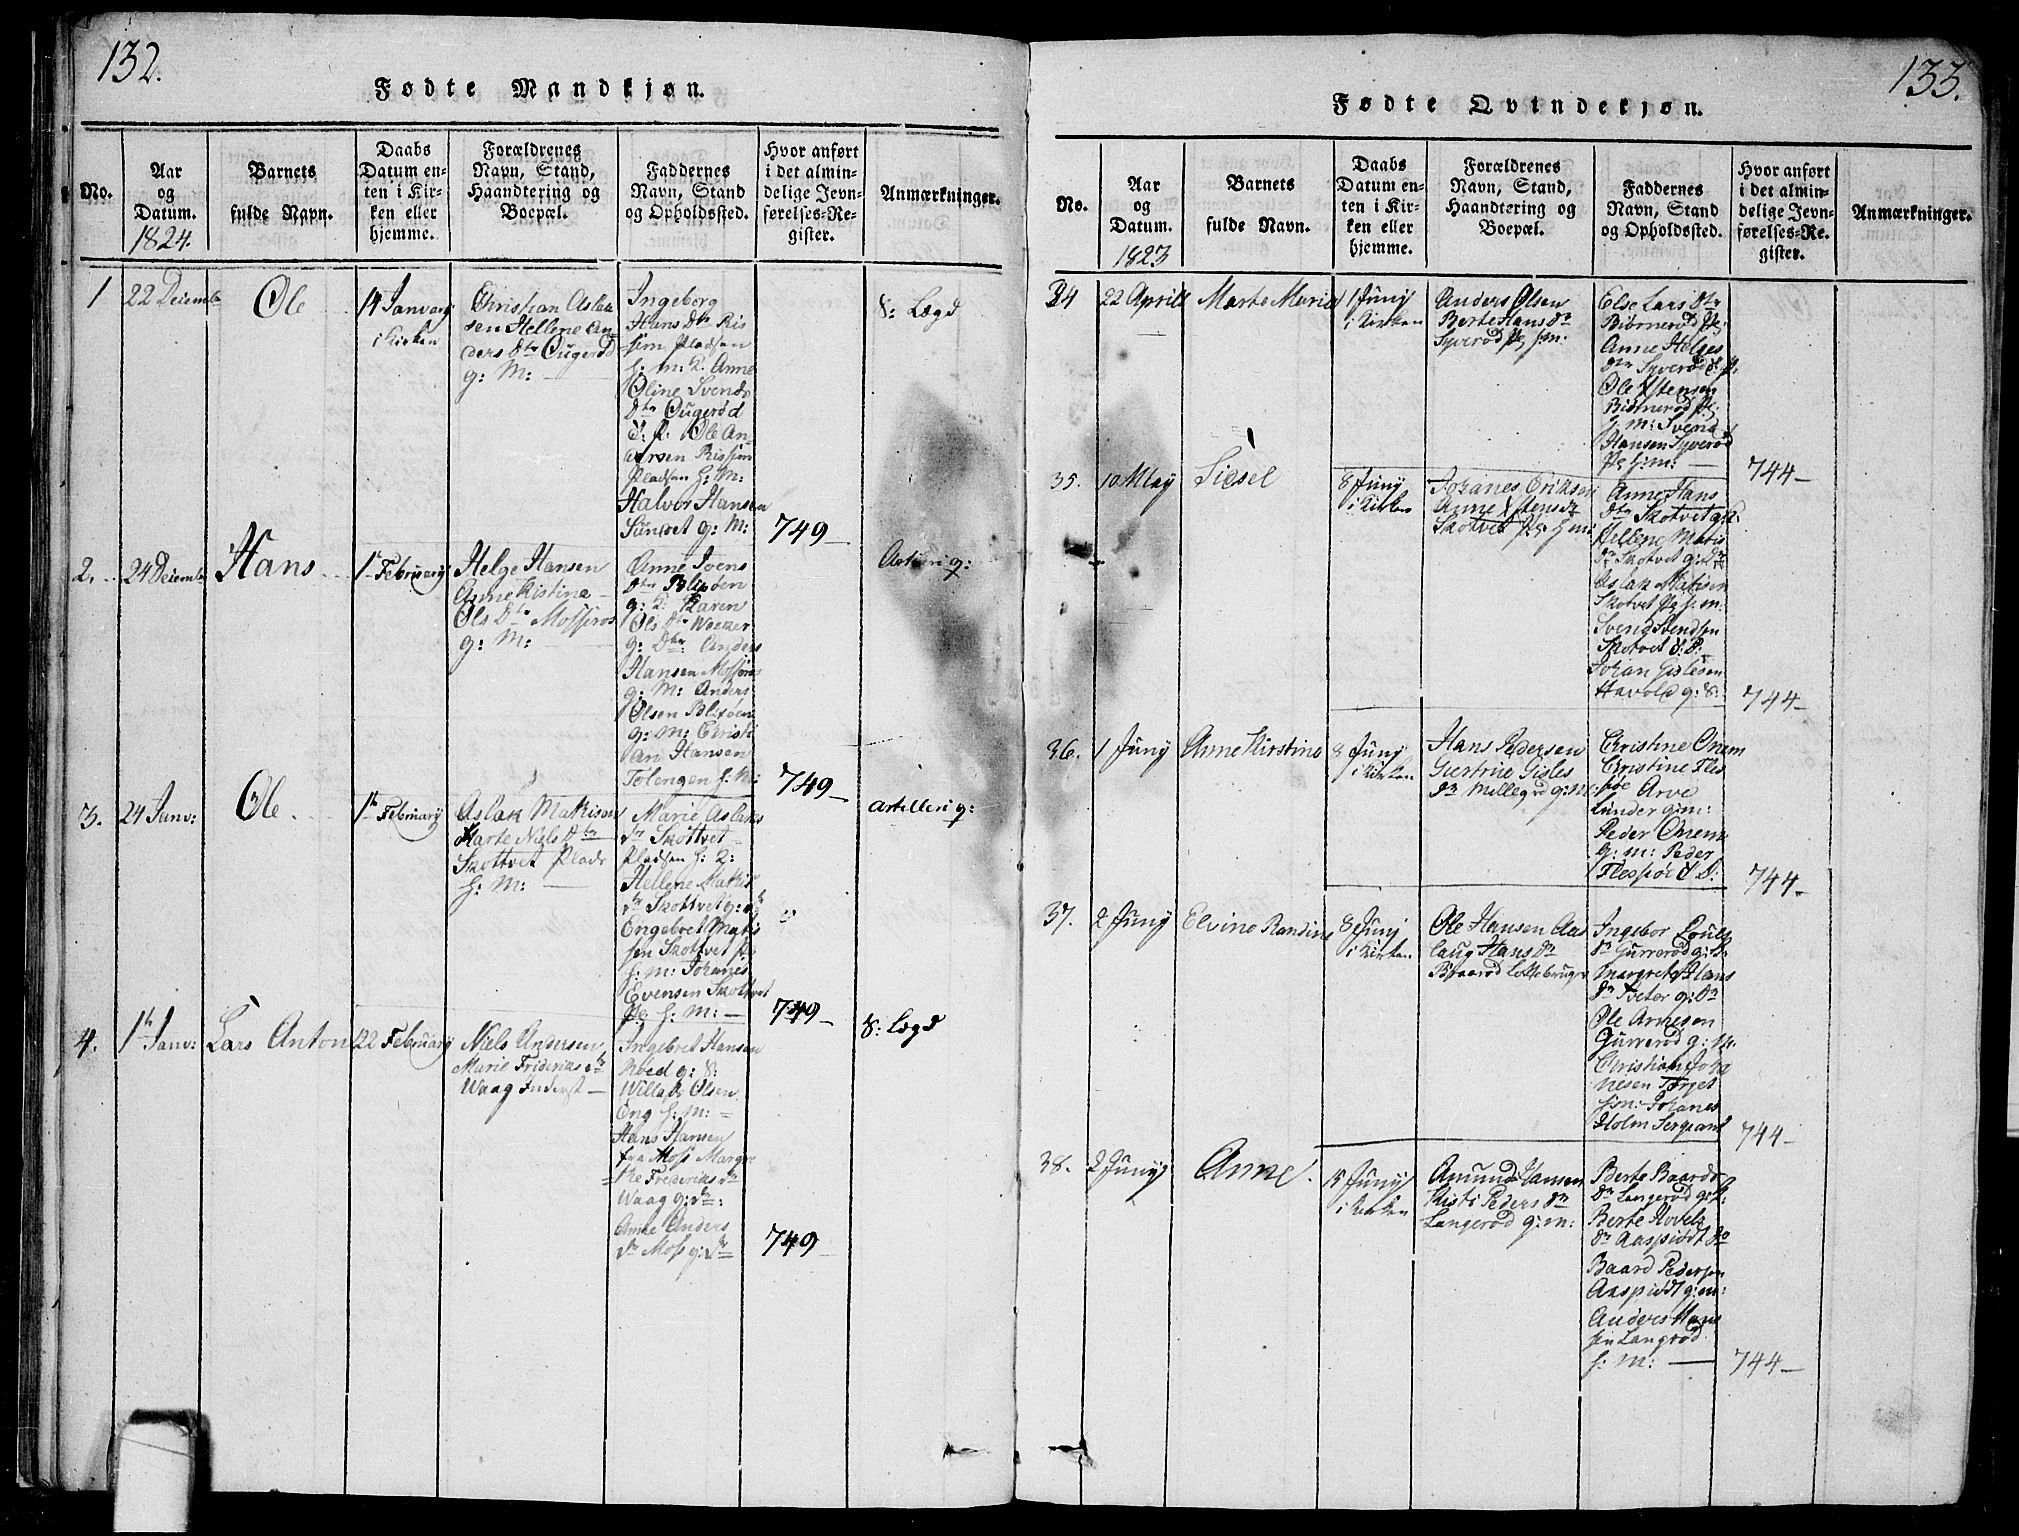 132.
Fødte Mandkjøn.
No.
Aar
og
Datum.
1824.
Barnets
fulde Navn.
Daabs
Datum en-
ten i Kir-
ken eller
hjemme.
Forældrenes
Navn, Stand,
Haandtering og
Boepæl.
Faddernes
Navn, Stand
og Opholdssted.
Hvor anført
i det almin-
delige Jevn-
førelses-Re-
gister.
Anmærkninger.
1
22 Decemb
Ole
14 Januarij
i Kirken
Christian Aslak
sen Hellene An
ders Dtr Ougerød
g: M:
Ingeborg
Hans Dtr Ris
sim Pladsen
h: m: K. Anne
Oline Svends
Dtr Ougerød
d: p: Ole An
dersen Rissim
Pladsen h: M:
Halvor Hansen
Sundet g: M:
749
8: Lægd
2.
24 Decemb
Hans
1 Februarij
Helge Hansen
Anne Kistine
Ols Dtr Mossøros
g: M:
Anne Joens
Dtr Blixøen
g: K: Karen
Ols Dtr
g: Dtr: Anders
Hansen Mossøros
g: M: Anders
Olsen Blixøen
g: m: Christi
an Hansen
Tolengen h: M:
749
g:
3.
24 Janv:
Ole
1 Februarij
Aslak Mathisen
Marte Niels Dtr
Skottvet Plads
h: M:
Marie Aslaks
dr Skottvet
Pladsen h: K:
Hellene Mathis
dr Skottvet g: dr
Engebret Mathi
sen Skottvet
h: m: Johanes
Evensen Skottvet
Pe h: M:
749
Artilleri g:
4.
1 Janv:
Lars Anton
22 Februarij
Niels Andersen
Marie Frideriks dr
Waag Inderst
Ingebret Hansen
Noed g: 8:
Willads Olsen
Eng h: M:
Hans Hansen
fra Moss Margre
the Frederiks dr
Waag g: dr:
Anne Anders
dr Moss g: dr
749
8: Lægd
133.
Fødte Qvindekjøn.
No.
Aar
og
Datum.
1823
Barnets
fulde Navn.
Daabs
Datum en-
ten i Kir-
ken eller
hjemme.
Forældrenes
Navn, Stand,
Haandtering og
Boepæl.
Faddernes
Navn, Stand
og Opholdssted.
Hvor anført
i det almin-
delige Jevn-
førelses-Re-
gister.
Anmærkninger.
34
22 Aprill
Marte Maria
1 Junij
i Kirken
Anders Olsen
Berte Hans dr
Syverød Pe h: m:
Else Lars Dtr
Biørnerød Pe:
Anne Helges
dtr Syverød d: p.
Ole Ystensen
Biørnerød Pe:
h: m: Svend
Hansen Syverød
Pe h: m:
744
35.
10 May
Siesel
8 Junij
i Kirken
Johanes Eriksen
Anne Ystens dr
Skotvet Pe: h: m:
Anne Hans
dtr Skotvet g: K.
Hellene Matis
dr Skotvet g: dr
Aslak Matisen
Skotvet Pe h: m.
Svend Svendsen
Skotvet d: d:
Johan Gislesen
Havold g: 8:
744
36.
1 Junij
Anne Kirstine
8 Junij
i Kirken
Hans Pedersen
Giertrue Gisles
dr Millegrd g: m:
Christine Onem
Christine Fles
siøe Arve
Lunder g: m:
Peder Onem
g: m: Peder
Flessiøe d D:
744
37.
2 Junij
Elvine Randine
8 Junij
i Kirken
Ole Hansen Aas
laug Hans dr
Braarød
Ingebor Pouls
dr Gurrerød g: K.
Margrete Hans
dr Tveter g: dr
Ole Arnesen
Gurrerød g: M.
Christian Joha
nesen Torpet
h: m: Johanes
Holm Sergeant
744
38.
2 Junij
Anne.
15 Junij
i Kirken
Amund Hansen
Kisti Peders dr
Langerød g: m:
Berte Baards
dr Langerød g: K.
Berte Hovels
dr Aaspiødt do
Baard Pedersen
Aaspiødt g: m:
Anders Hans
sen Langrød
h: m:
744